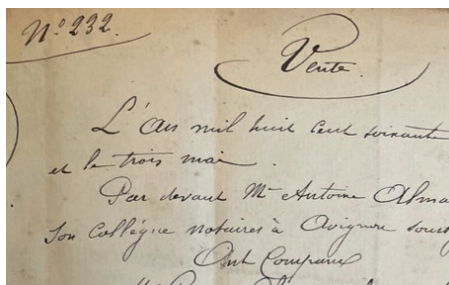 N° 232.
Vente.
L'An mil huit cent soixante
et le trois mai.
Par devant Me Antoine Alma
Son Collègue notaires à Avignon sous
Ont Comparu